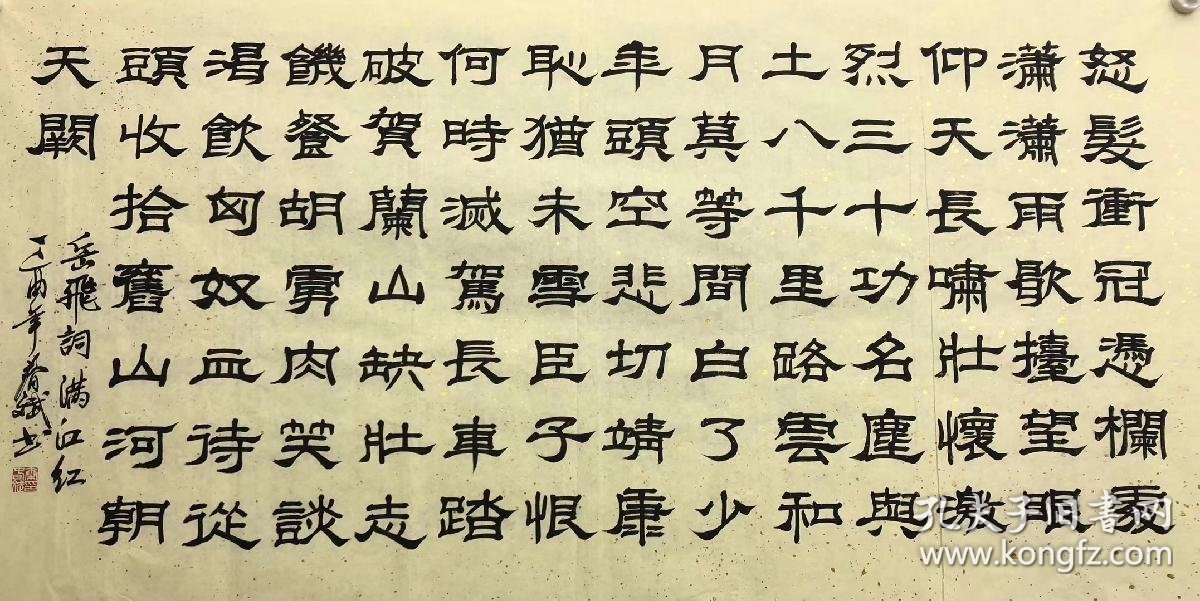 怒髮衝冠憑欄處
瀟瀟雨歇擡望眼
仰天長嘯壯懷激
烈三十功名塵與
土八千里路雲和
月莫等間白了少
年頭空悲切靖康
恥猶未雪臣子恨
何時滅駕長車踏
破賀蘭山缺壯志
饑餐胡虜肉笑談
渴飲匈奴血待從
頭收拾舊山河朝
天闕
岳飛詞满江红
丁酉年春斌书
孔夫子旧书网
www.kongfz.com